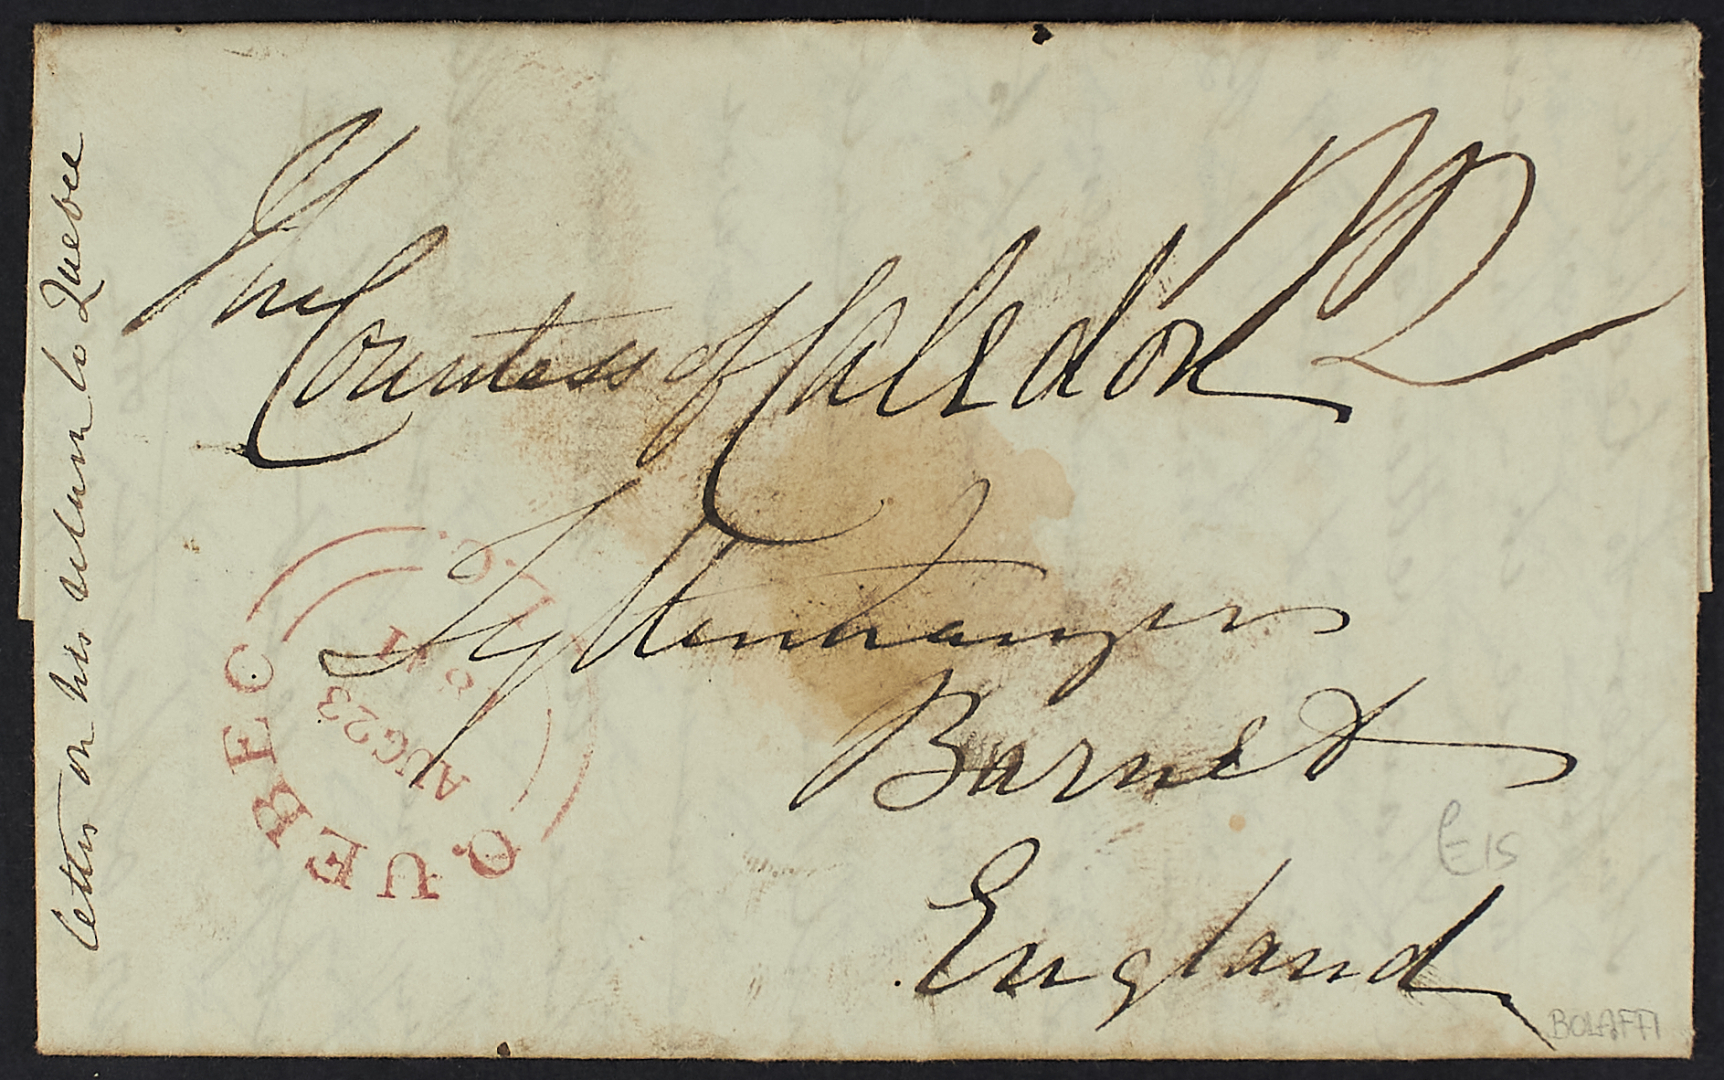 The
Countess of Caledon
Tyttenhanger
Barnet
England
letter on his return to Quebec
QUEBEC L.C.
AUG 23
£15
BOLAFFI